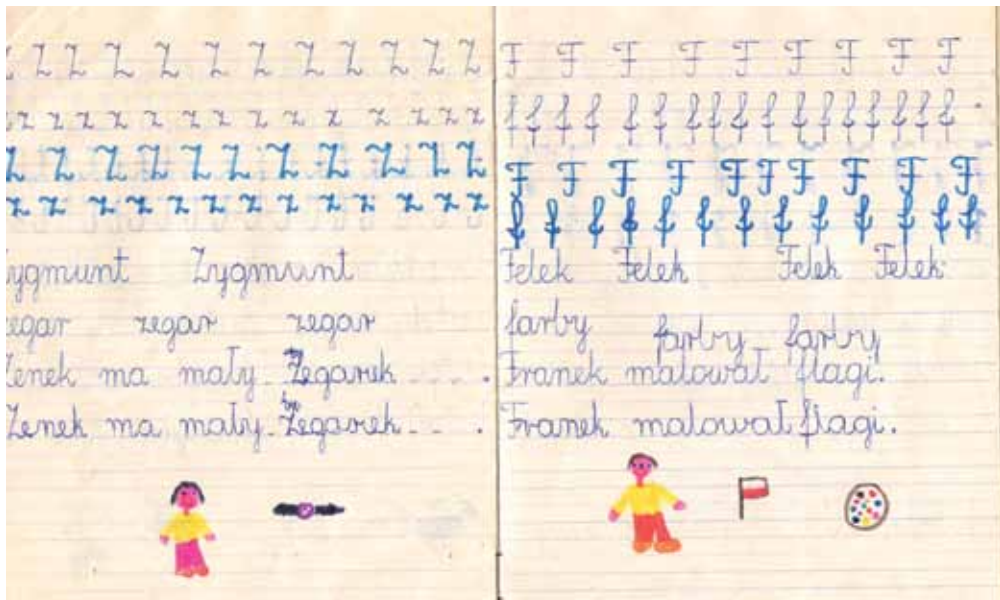 Z Z Z Z Z Z Z Z Z Z Z
z z z z z z z z z z z z z z
Z Z Z Z Z Z Z Z Z Z
z z z z z z z z z z z z z
Zygmunt Zygmunt
zegar zegar zegar
Zenek ma mały Zegarek .
Zenek ma mały Zegarek .
F F F F F F F F F
f f f f f f f f f f f f f f f f
F F F F F F F F F
f f f f f f f f f f f f f
Felek Felek Felek Felek
farby farby farby
Franek malował flagi.
Franek malował flagi.